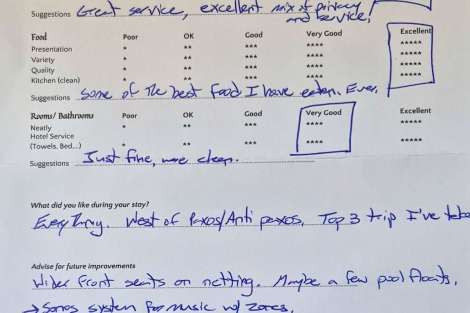 Suggestions Great service, excellent mix of privacy
and service,
Food Poor OK Good Very Good Excellent
Presentation * ** *** **** *****
Variety * ** *** **** *****
Quality * ** *** **** *****
Kitchen (clean) * ** *** **** *****
Suggestions Some of the best food I have eaten. Ever.
Rooms/ Bathrooms Poor OK Good Very Good Excellent
Neatly * ** *** **** *****
Hotel Service
(Towels, Bed...) * ** *** **** *****
Suggestions Just fine, were clean.
What did you like during your stay?
Everything. West of Paxos/Anti paxos. Top 3 trip I've
Advise for future improvements
Wider front seats on netting. Maybe a few pool floats.
→ Sonos system for music w/ zones.